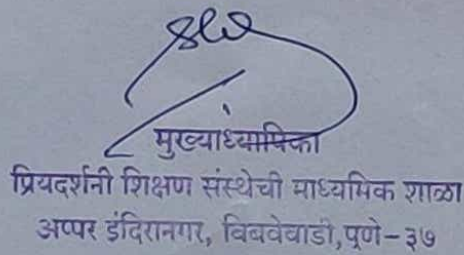 मुख्याध्यापिका
प्रियदर्शनी शिक्षण संस्थेची माध्यमिक शाळा
अप्पर इंदिरानगर, बिबवेवाडी, पुणे-३७